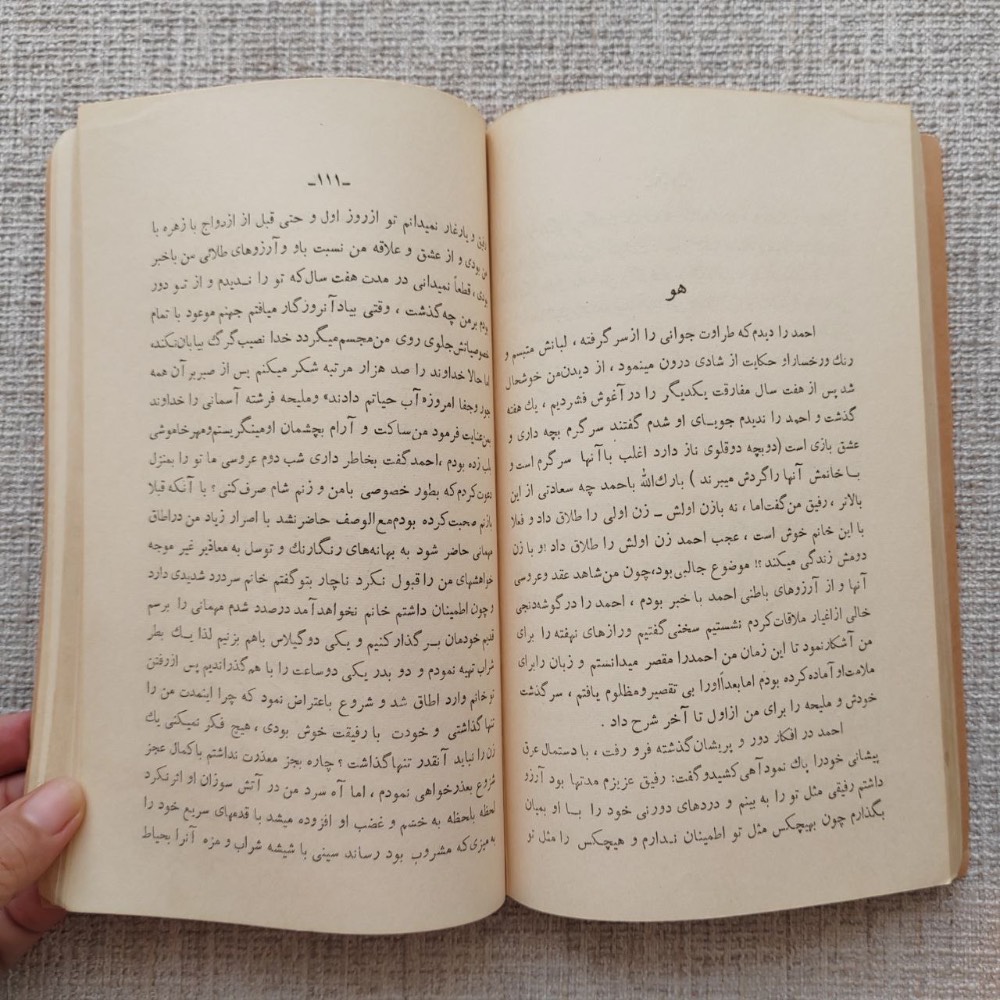 هو
احمد را دیدم که طراوت جوانی را از سر گرفته ، لبانش متبسم و
رنگ ورخساراو حکایت از شادی درون مینمود ، از دیدن من خوشحال
شد پس از هفت سال مفارقت یکدیگر را در آغوش فشردیم ، یك هفته
گذشت و احمد را ندیدم جویـای او شدم گفتند سرگرم بچه داری و
عشق بازی است (دوبچه دوقلوی ناز دارد اغلب باآنها سرگرم است و
بـا خانمش آنها راگردش میبرند ) بارك‌الله باحمد چه سعادتی از این
بالاتر ، رفیق من گفت اما ، نه بازن اولش ـ زن اولی را طلاق داد و فعلا
با این خانم خوش است ، عجب احمد زن اولش را طلاق داد !و با زن
دومش زندگی میکند !! موضوع جالبی بود،چون من شاهد عقد وعروسی
آنها و از آرزوهای باطنی احمد با خبر بودم ، احمد را در گوشه‌دنجی
خالی ازاغیار ملاقات کردم نشستیم سخنی گفتیم ورازهای نهفته را برای
من آشکارنمود تا این زمان من احمدرا مقصر میدانستم و زبان رابرای
ملامت‌او آماده کرده بودم امابعداًاورا بی تقصیر ومظلوم یافتم ، سرگذشت
خودش و ملیحه را برای من ازاول تا آخر شرح داد .
احمد در افکار دور و پریشان گذشته فرو رفت ، با دستمال عرق
پیشانی خودرا پاك نمود آهی کشیدو گفت: رفیق عزیزم مدتها بود آرزو
داشتم رفیقی مثل تو را به بینم و دردهای درونی خود را بـا او بمیان
بگذارم چون بهیچکس مثل تو اطمینان ندارم و هیچکس را مثل تو
ـ۱۱۱ـ
و یارغار نمیدانم تو ازروز اول و حتی قبل از ازدواج با زهره با
من بودی و از عشق و علاقه من نسبت باو و آرزوهای طلائی من باخبر
بودی ، قطعاً نمیدانی در مدت هفت سال که تو را نـدیدم و از تـو دور
بودم برمن چه گذشت ، وقتی بیادآنروزگار میافتم جهنم موعود با تمام
خصوصیاتش جلوی روی من مجسم میگردد خدا نصیب گرگ بیابان نکند،
اما حالا خداوند را صد هزار مرتبه شکر میکنم پس از صبر بر آن همه
جور وجفا امروزه آب حیاتم دادند» وملیحه فرشته آسمانی را خداوند
بمن عنایت فرمود من ساکت و آرام بچشمان اومینگریستم ومهر خاموشی
بلب زده بودم ،احمد گفت بخاطر داری شب دوم عروسی ما تو را بمنزل
دعوت کردم که بطور خصوصی بامن و زنم شام صرف کنی؟ با آنکه قبلا
بازنم صحبت کرده بودم مع الوصف حاضر نشد با اصرار زیاد من در اطاق
مهمانی حاضر شود به بهانه‌های رنگارنك و توسل به معاذیر غیر موجه
خواهشهای من را قبول نکرد ناچار بتو گفتم خانم سردرد شدیدی دارد
و چون اطمینان داشتم خانم نخواهدآمد درصدد شدم مهمانی را برسم
قدیم خودمان بـرگذار کنیم و یکی دو گیلاس باهم بزنیم لذا یـك بطر
شراب تهیه نمودم و دو بدر یکی دوساعت را با هم گذراندیم پس ازرفتن
تو خانم وارد اطاق شد و شروع باعتراض نمود که چرا اینمدت من را
تنها گذاشتی و خودت با رفیقت خوش بودی ، هیچ فکر نمیکنی یك
زن را نباید آنقدر تنها گذاشت ؟ چاره بجز معذوت نداشتم باکمال عجز
شروع بعذرخواهی نمودم ، اما آه سرد من در آتش سوزان او اثر نکرد
لحظه بلحظه به خشم و غضب او افزوده میشد با قدمهای سریع خود را
به میزی که مشروب بود رساند سینی با شیشه شراب و مزه آنرا بحیاط